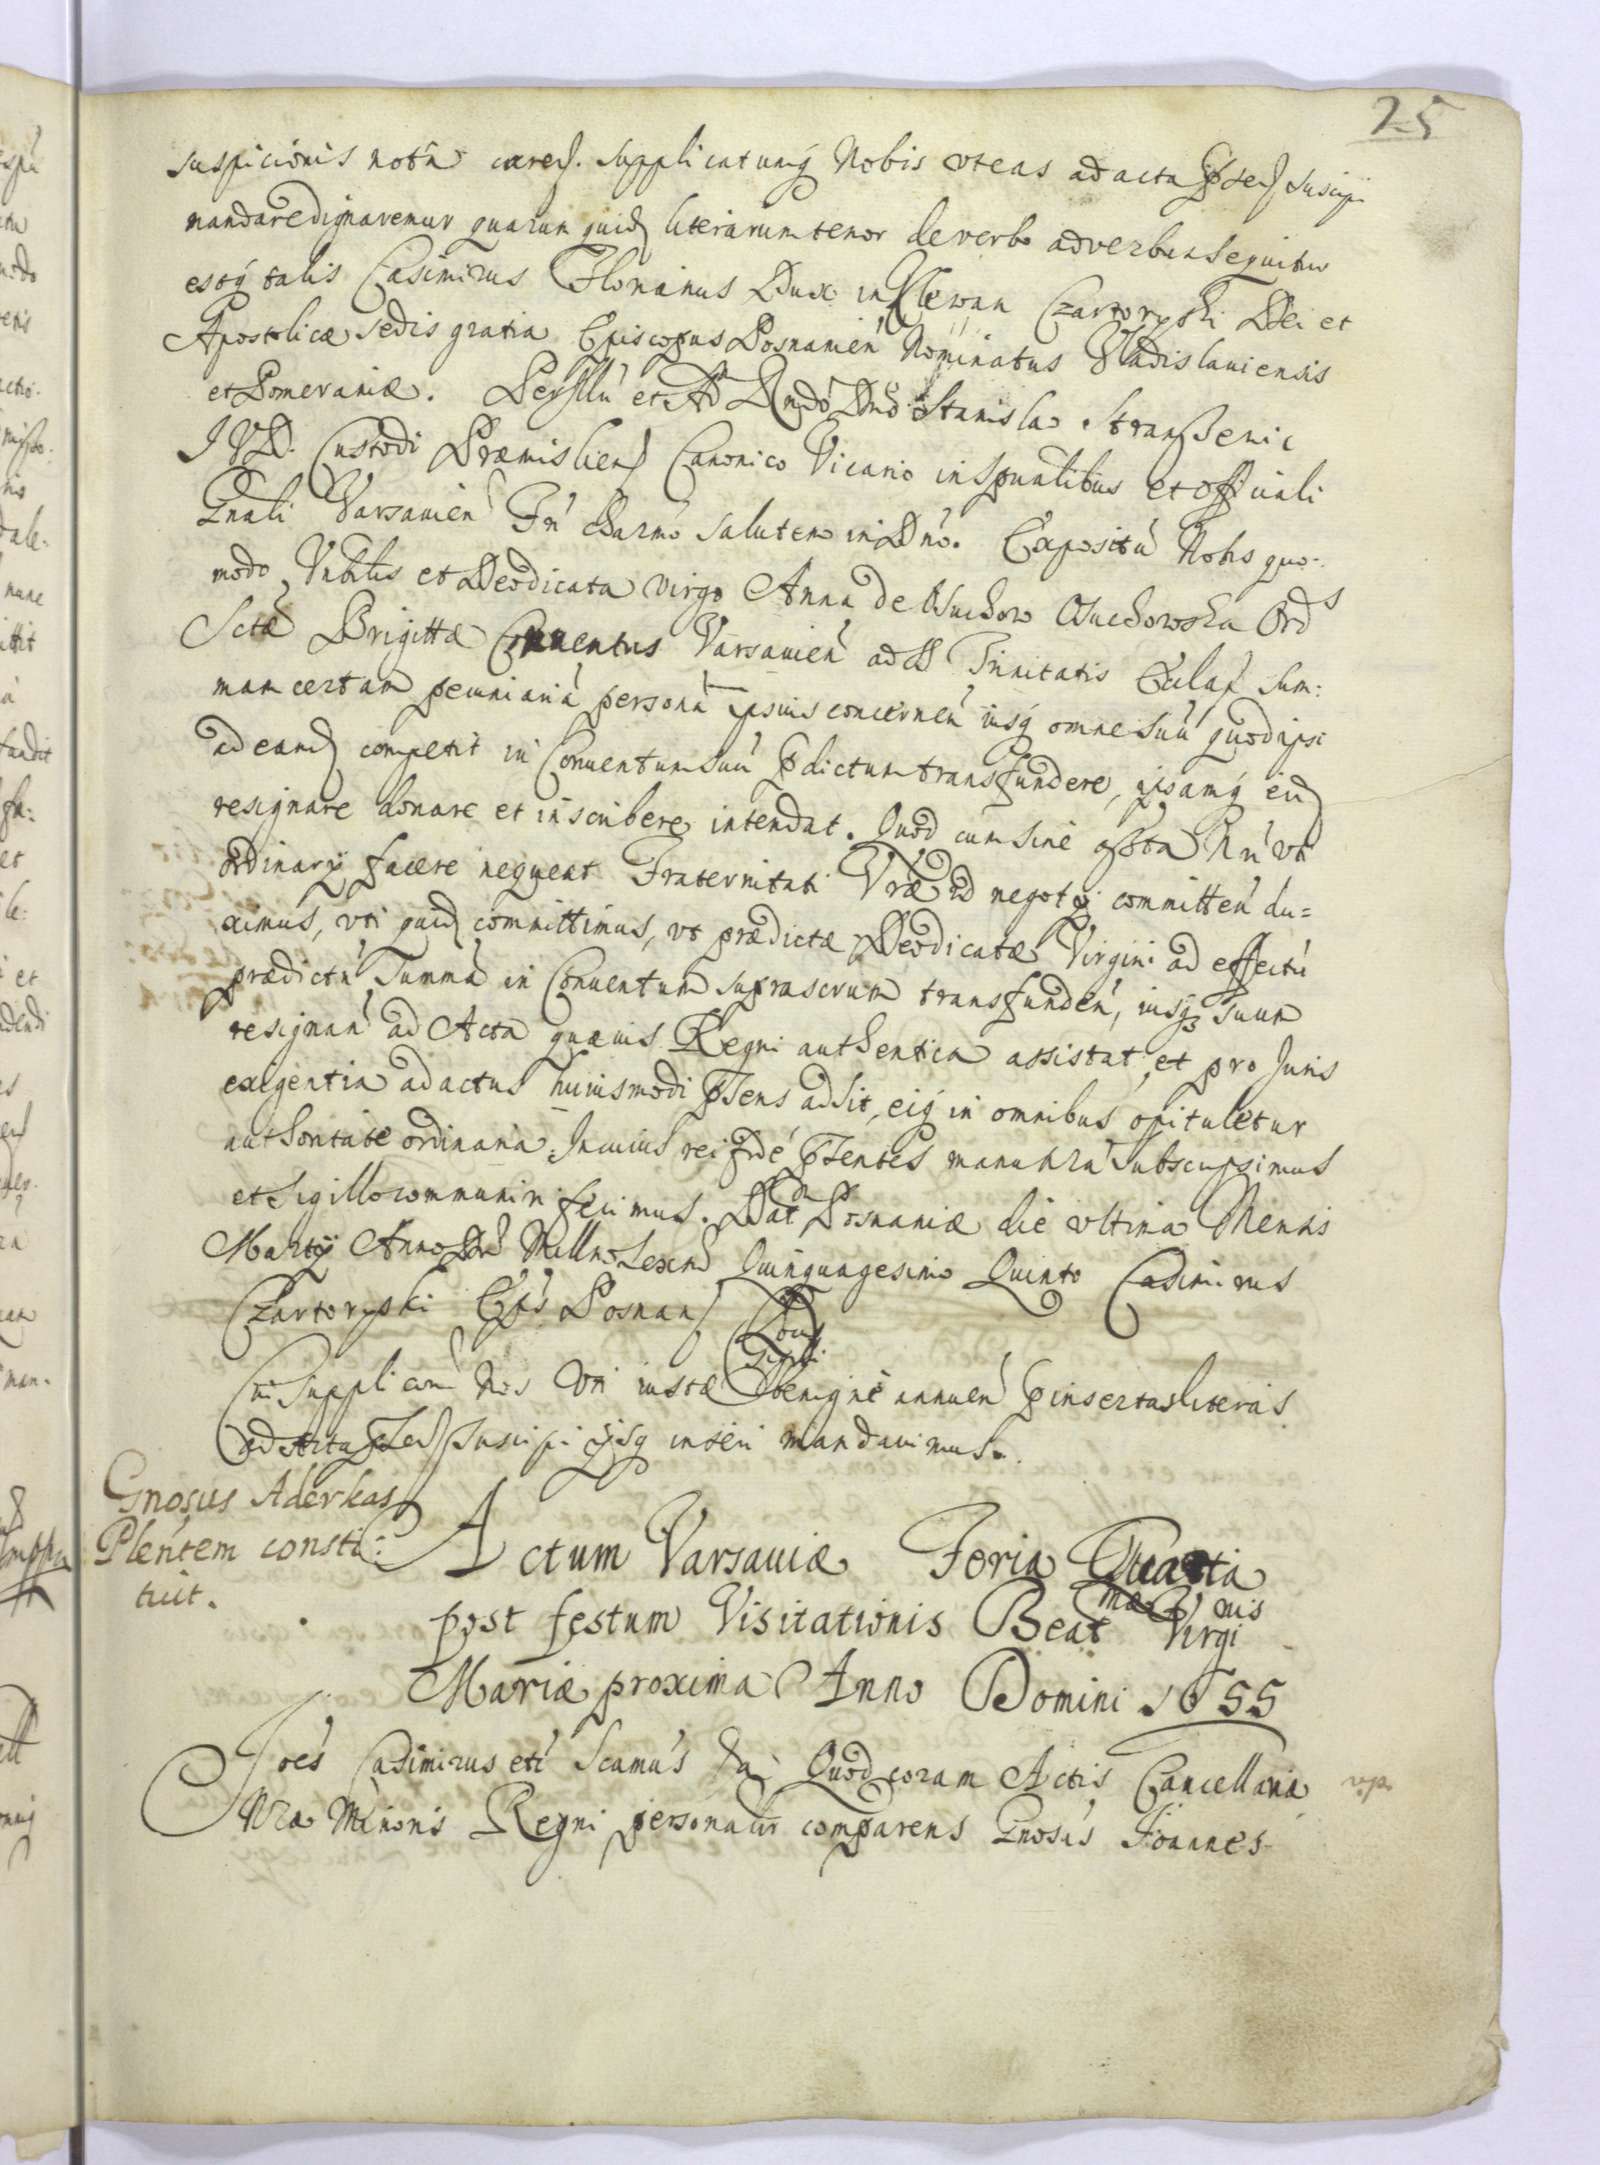 25
suspicionis nota caren. supplicatumq Nobis vt eas ad acta pnten suscipi
mandare dignaremur quarum quid literarum tenor de verbo ad verbum sequitur
estq talis Casimirus Florianus Dux in Klewan Czartoryski Dei et
Apostolicæ sedis gratia Episcopus Posnanien Nominatus Vladislauiensis
et Pomeraniæ. Perillu et Ad Rndo Dno Stanislao
I V D. Custodi Præmislien Canonico Vicario in Spualibus et Officiali
Gnali Varsauien Fri Charmo salutem in Dno. Expositu Nobis quo:
modo Nobilis et Deodicata virgo Anna de Osuchow Osuchowska Ord s
Sctæ Brigittæ Conuentus Varsauien ad S Trinitatis Eclas sum:
mam certam pecuniaria persona ipsius concernen iusq omne suu quod ipsi
ad eand competit in Conuentum suu pdictum transfundere, ipsamq eid
resignare donare et inscribere intendat. Quod cum sine assta Nri vti
ordinarij facere nequeat Fraternitati Vræ id negotij committen du=
ximus, vti quid committimus, vt prædictæ Deodicatæ Virgini ad effectu
prædicta Summa in Conuentum suprascrum transfunden, iusq suum
resignan ad Acta quæuis Regni authentica assistat, et pro Iuris
exigentia ad actus huiusmodi psens adsit, eiq in omnibus opituletur
authoritate ordinaria. In cuius rei fide psentes manu nra subscripsimus
et Sigillo communiri fecimus. Dat Posnaniæ die vltima Mensis
Martij Anno Dni Millno Sexcno Quinquagesimo Quinto Casimirus
Czartoryski Eps Posnan Locus
Sigilli
Cui supplicaoni Nos Vti iustæ benigne annuen pinsertas literas
ad Acta pnten suscipi ijsq inseri mandauimus.
Gnosus Aderkas
Plentem consti:
tuit.
Actum Varsauiæ Feria Quarta
post festum Visitationis Beat mæ Virgi nis
Mariæ proxima Anno Domini 1655
Joes Casimirus etc Scamus Quod coram Actis Cancellaria
Nra Minoris Regni personaliter comparens Gnosus Joannes